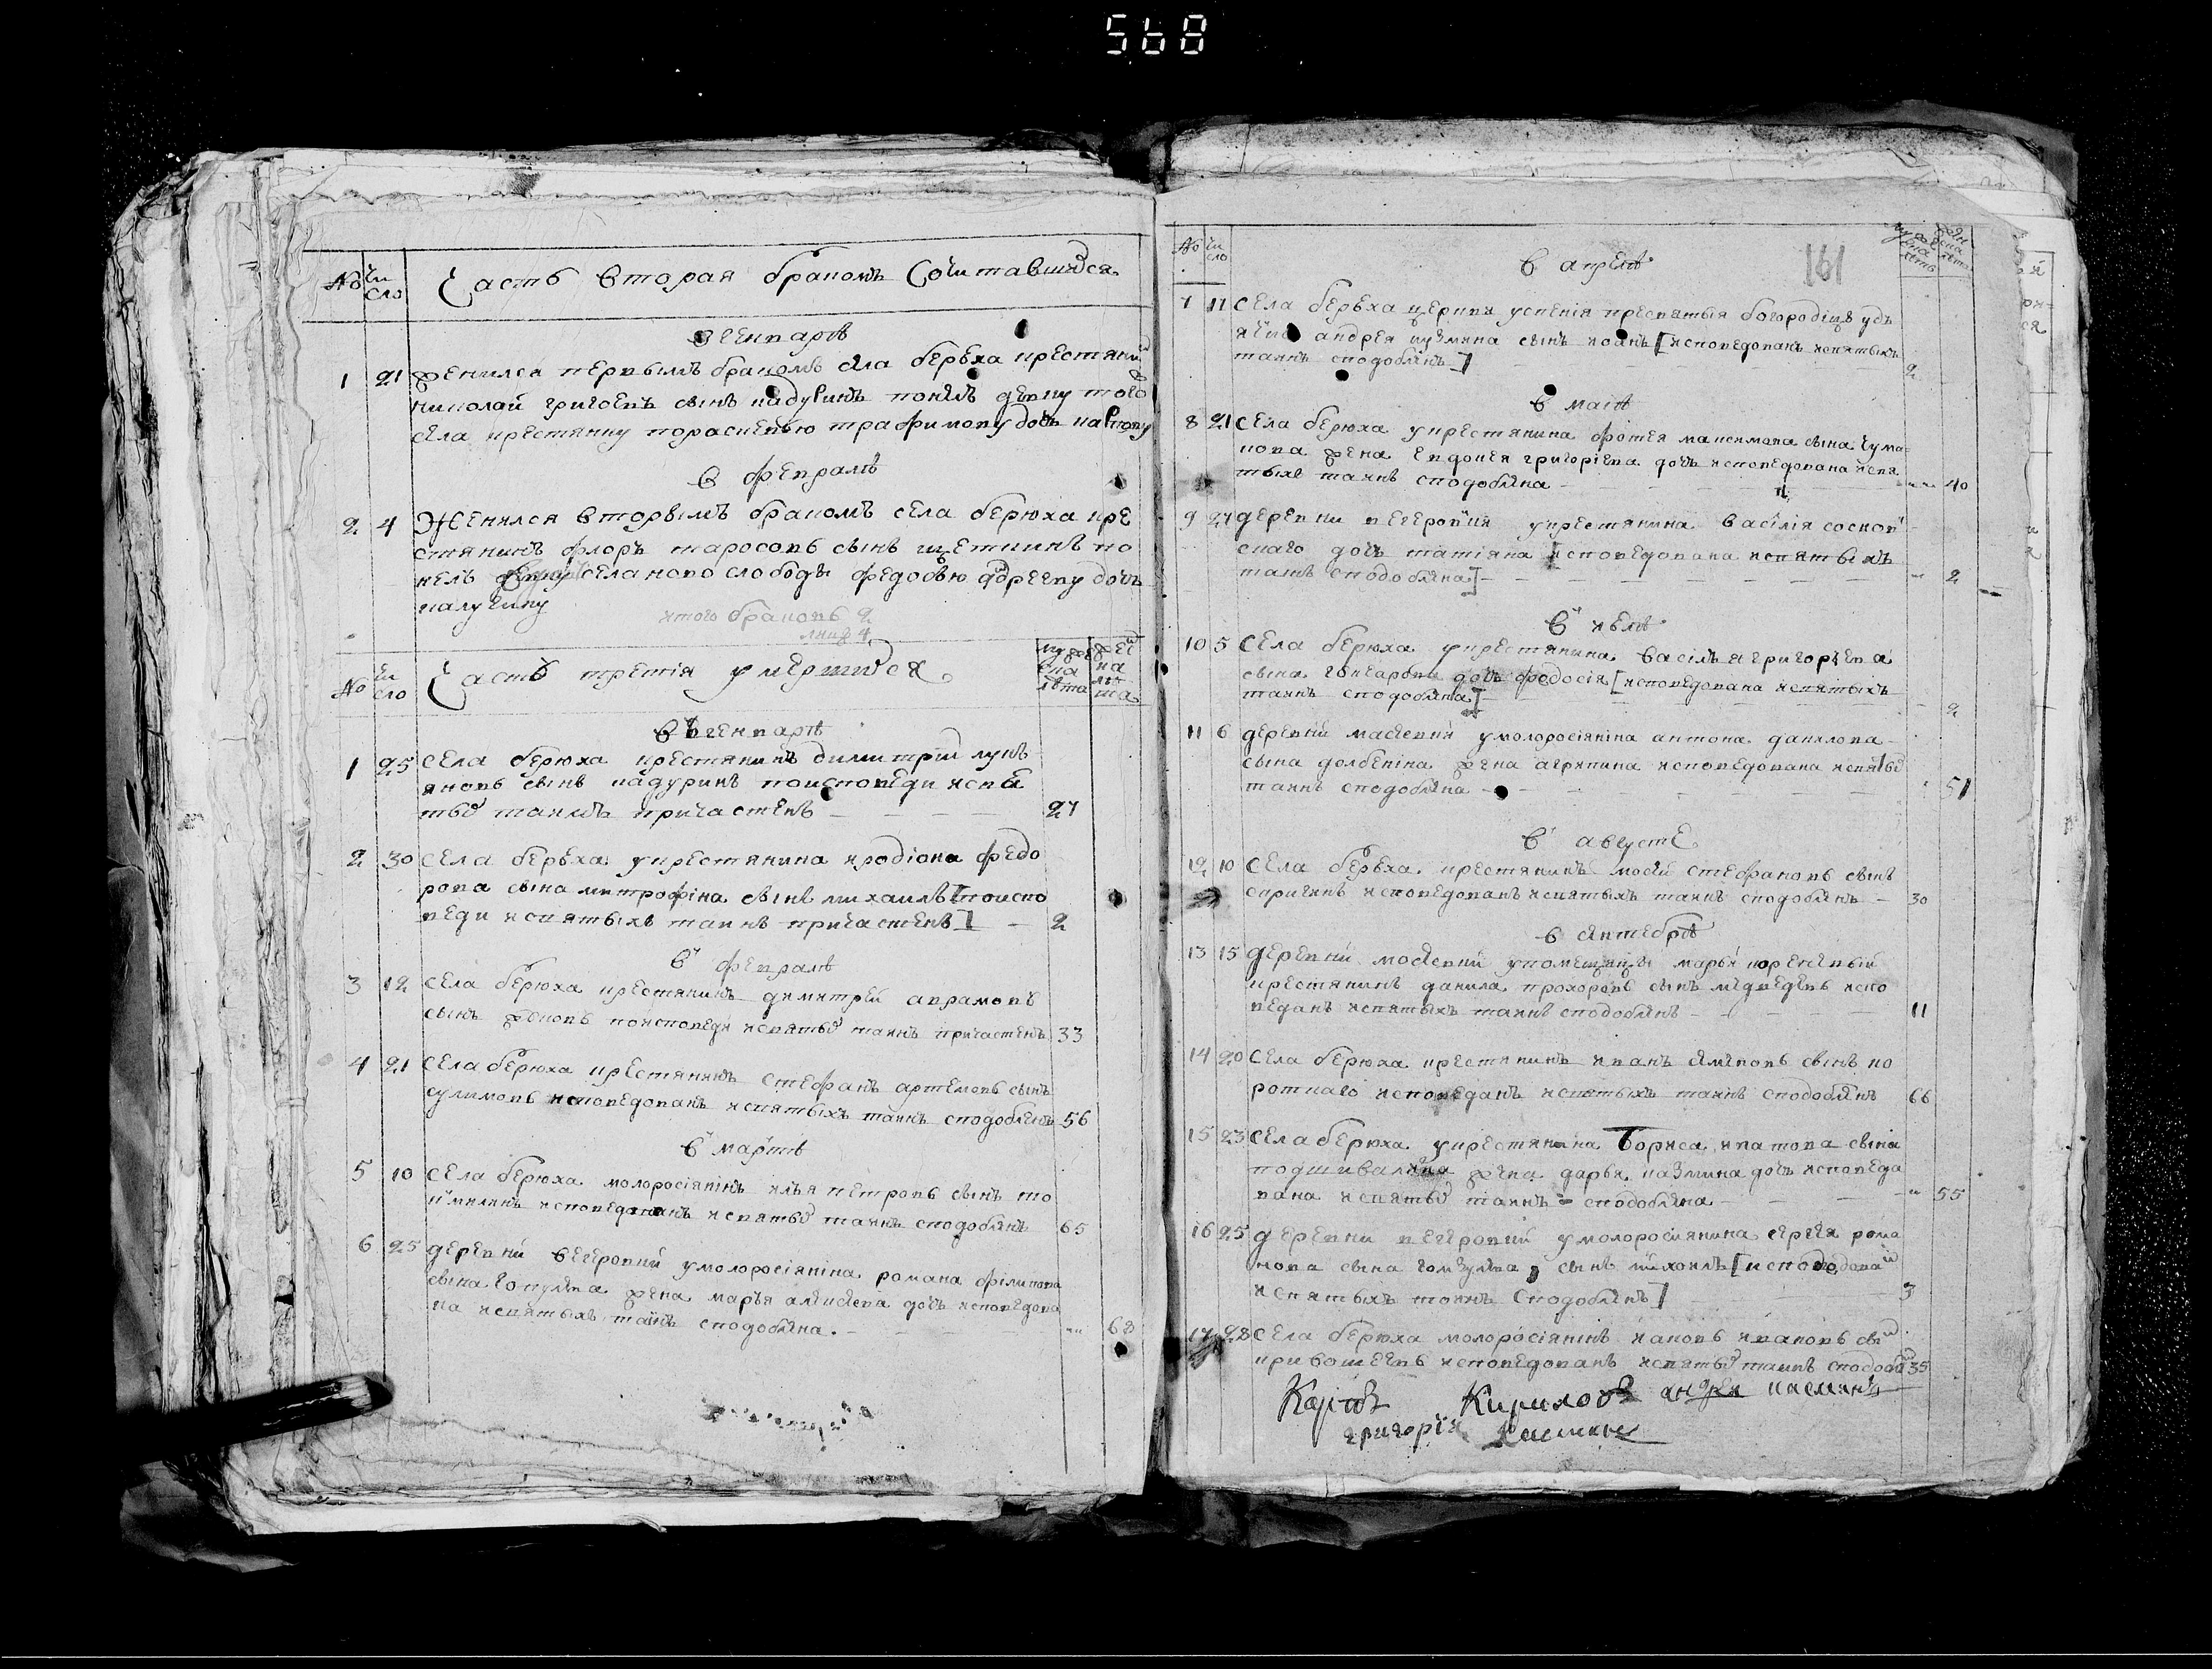 568
№ Чи
сло
Часть вторая браком Сочитавшихся
В генваре
1 21 женился первым браком села беръха крестянин
николай григоевъ сынъ кадурин понялъ девку того
села крестянку парасневю трафимову дочь
в феврале
2 4 Женился вторымъ браком села берюха кре
стянинъ флоръ таросовъ сынъ щетинин по
нелъ села ново слободы федосью дочь
калугину
итого браковъ 2
лиц 4
№ Чи
сло
Часть третія умершихся
мужеска лета
женска лета
Въ генваре
1 25 села берюха крестянинъ димитрій лукъ
яновъ сынъ кадурин поисповеди исвя
тых таинъ причастенъ 27
2 30 села беръха у крестянина иродіона федо
рова сына митрофіна сынъ михаилъ [поиспо
веди исвятыхъ таинъ причастенъ] 2
В феврале
3 12 села берюха крестянинъ димитрей аврамовъ
сынъ жоновъ поисповеди исвятых таинъ причастенъ 33
4 21 села берюха крестянинъ стефанъ артемовъ сынъ
сулимовъ исповедованъ исвятыхъ таинъ сподобленъ 56
В марте
5 10 села берюха молоросіянінъ илья петровъ сынъ
исповедованъ исвятых таинъ сподобленъ 65
6 25 деревни вечеровки умолоросіяніна романа філипова
сына жена марья алексева дочь исповедова
на исвятыхъ таинъ сподоблена. 68
№ чи
сло
161
В апреле
7 11 села беръха церкви успенія пресвятыя богородіцы удь
ячка андрея кузмина сынъ иоанъ [исповедованъ исвятыхъ
таинъ сподобленъ] 2
В маіе
8 21 села берюха у крестянина фотея максимова сына чума
кова жена евдокея григоріева дочь исповедована исвя
тыхъ таинъ сподоблена 40
9 27 деревни вечеровки у крестянина василія соснов
скаго дочь татіяна [исповедована исвятыхъ
таинъ сподоблена] 2
В июле
10 5 Села берюха у крестянина василья григорьева
сына гончарова дочь федосія [исповедована исвятыхъ
таинъ сподоблена] 2
11 6 деревни масаевки умолоросіяніна антона данилова
сына долбеніна жена агрипина исповедована исвятых
таинъ сподоблена 51
В августе
12 10 села беръха крестянинъ мосей стефановъ сынъ
исповедованъ исвятыхъ таинъ сподобленъ 30
в сентебре
13 15 деревни упомещицы марьи
крестянинъ данила прохоровъ сынъ медведевъ испо
веданъ исвятыхъ таинъ сподобленъ 11
14 20 Села берюха крестянинъ иванъ семеновъ сынъ ко
роткаго исповеданъ исвятыхъ таинъ сподобленъ 66
15 23 села берюха у крестянина Бориса ипатова сына
подшивалина жена дарья казмина дочь исповеда
вана исвятых таинъ сподоблена 55
16 25 деревни вечеровки умолоросиянина сергея рома
нова сына сынъ михаилъ [исповедован
исвятыхъ таинъ Сподобленъ] 3
17 28 села берюха молоросіянінъ ивановъ сын
кривошеевъ исповедованъ исвятых таинъ сподоблен 35
Карпъ Кириловъ андрей касминъ
григорій